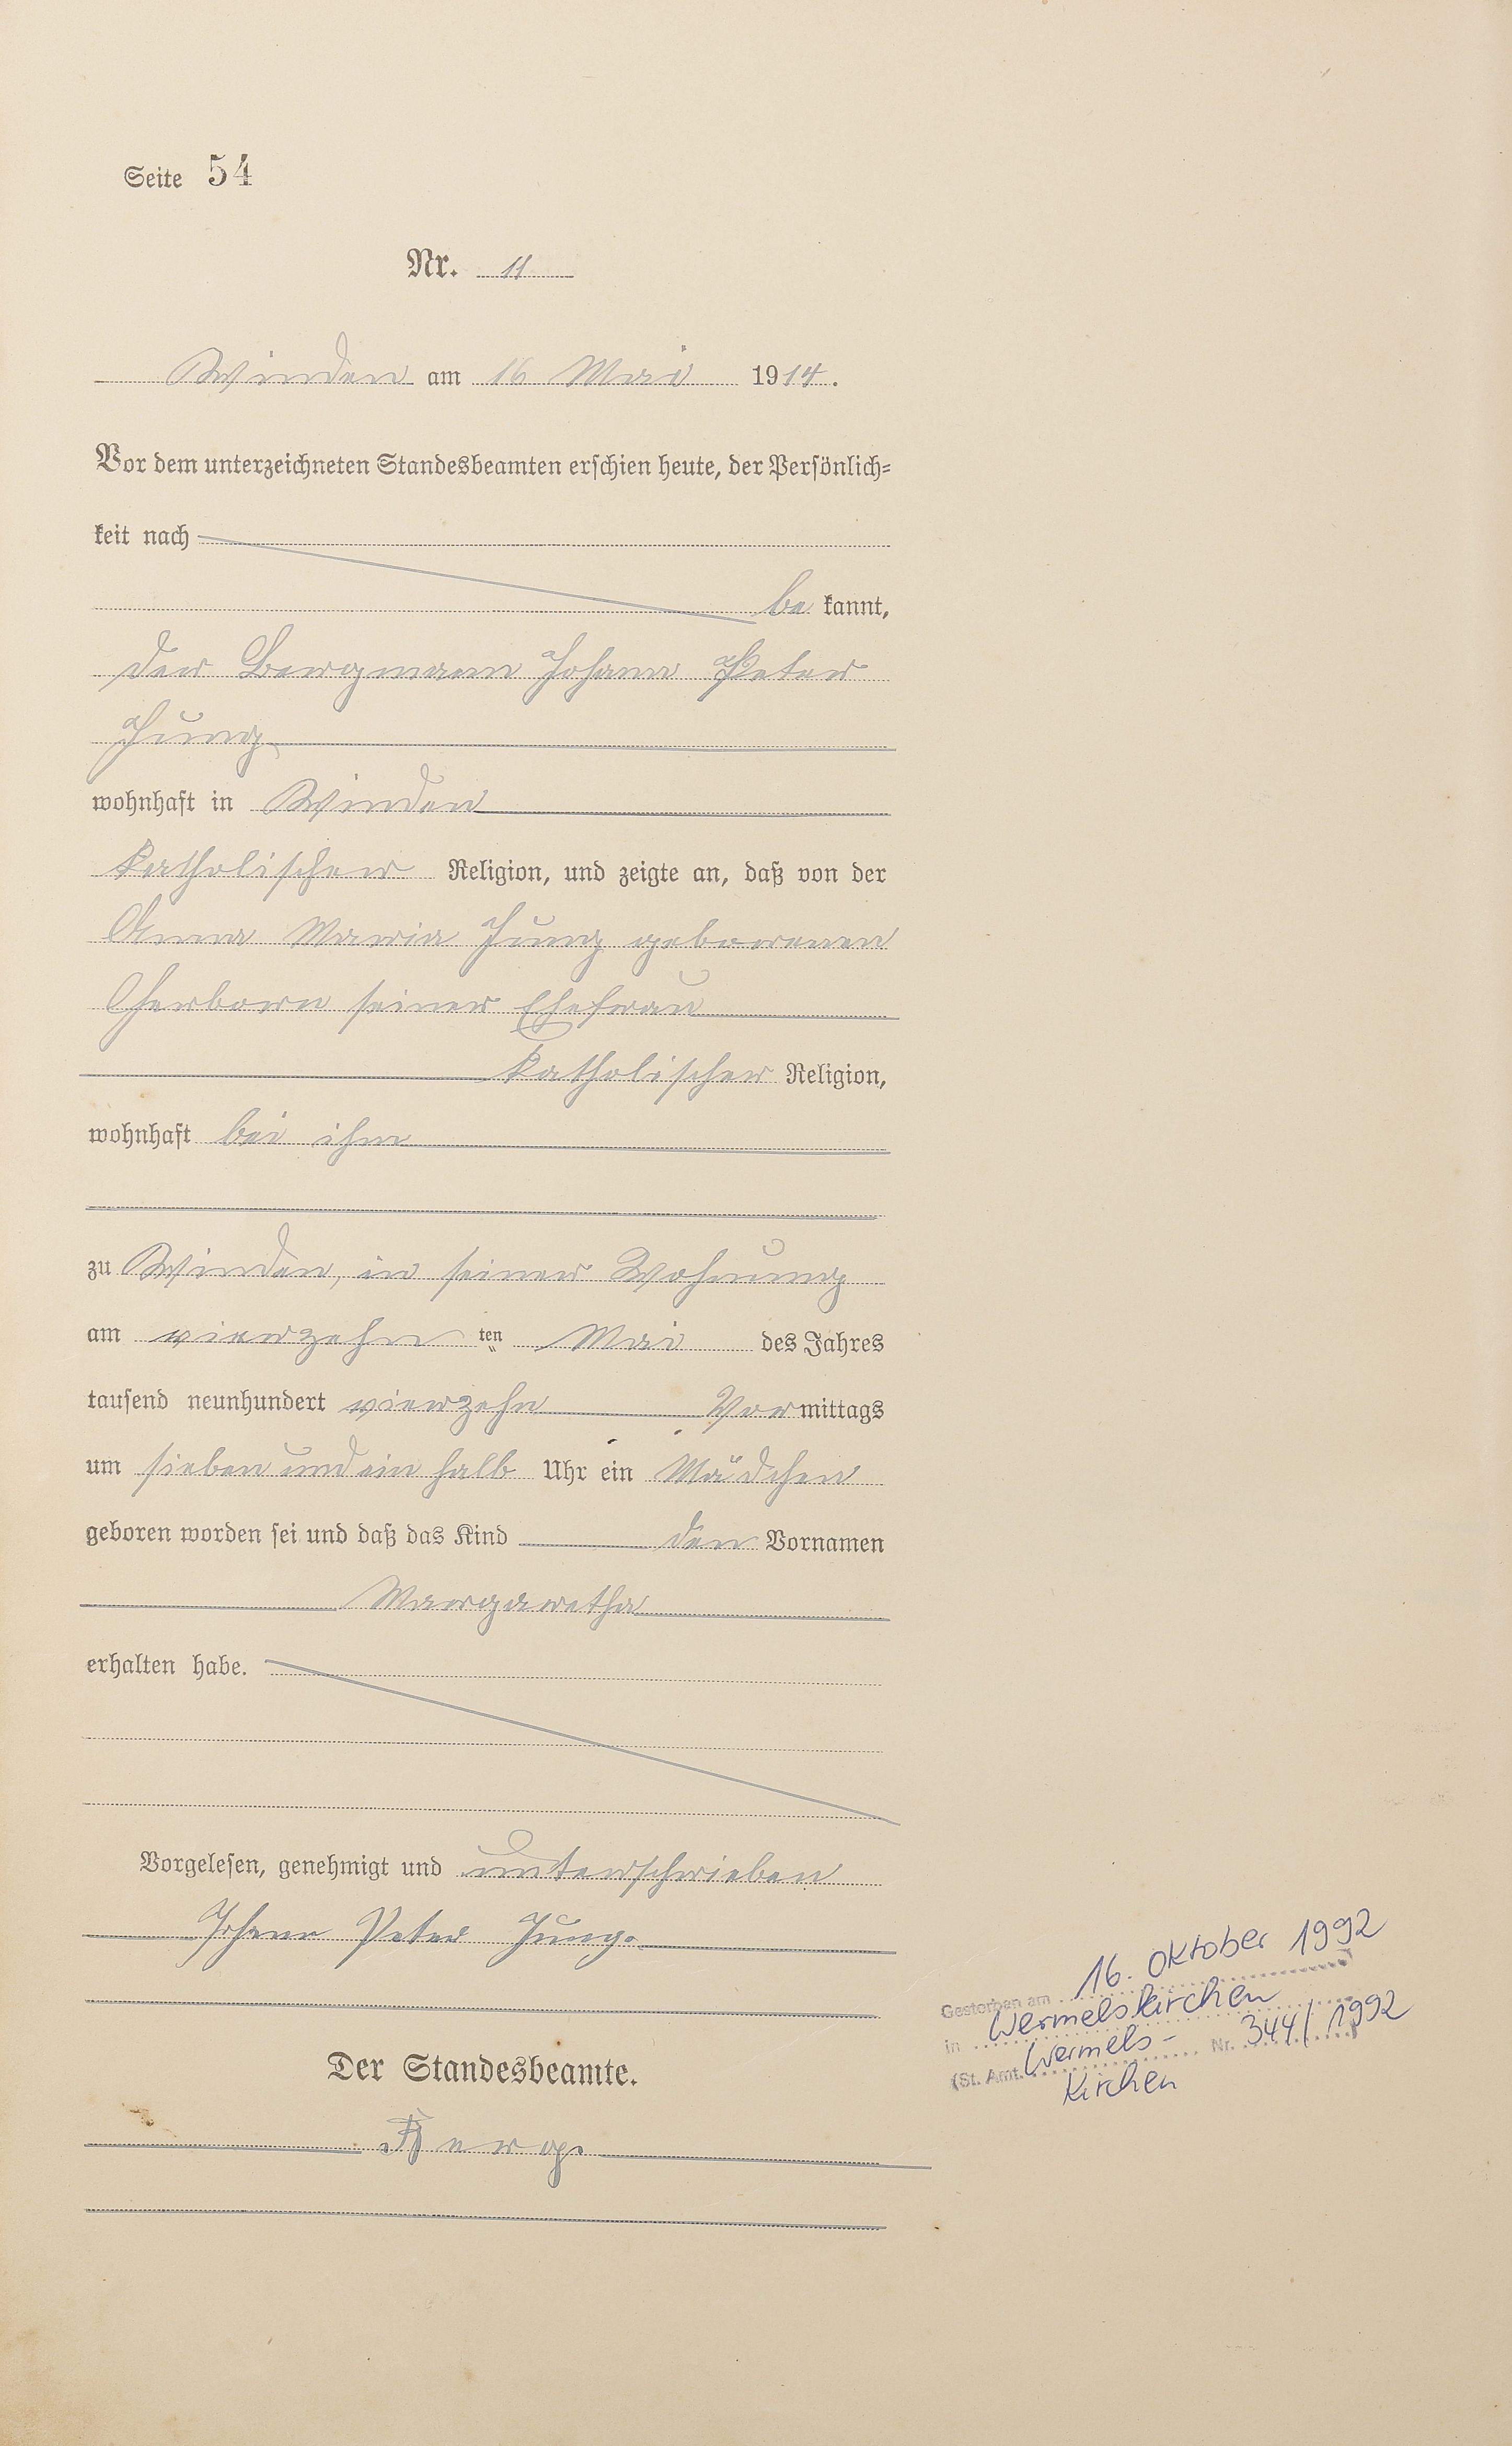 Seite 54
Nr. 11
Winden am 16 Mai 1914.
Vor dem unterzeichneten Standesbeamten erschien heute, der Persönlich-
keit nach
be kannt,
der Bergmann Johann Peter
Jung
wohnhaft in Winden
katholischer Religion, und zeigte an, daß von der
Anna Maria Jung geborenen
seiner Ehefrau
katholischer Religion,
wohnhaft bei ihm
zu Winden, in seiner Wohnung
am vierzehn ten Mai des Jahres
tausend neunhundert vierzehn Vormittags
um sieben und ein halb Uhr ein Mädchen
geboren worden sei und daß das Kind den Vornamen
Margaretha
erhalten habe.
Vorgelesen, genehmigt und unterschrieben
Johann Peter Jung.
Der Standesbeamte.
Gestorben am 16. Oktober 1992
in Wermelskirchen
(St. Amt. Wermels- Nr. 344/1992)
kirchen